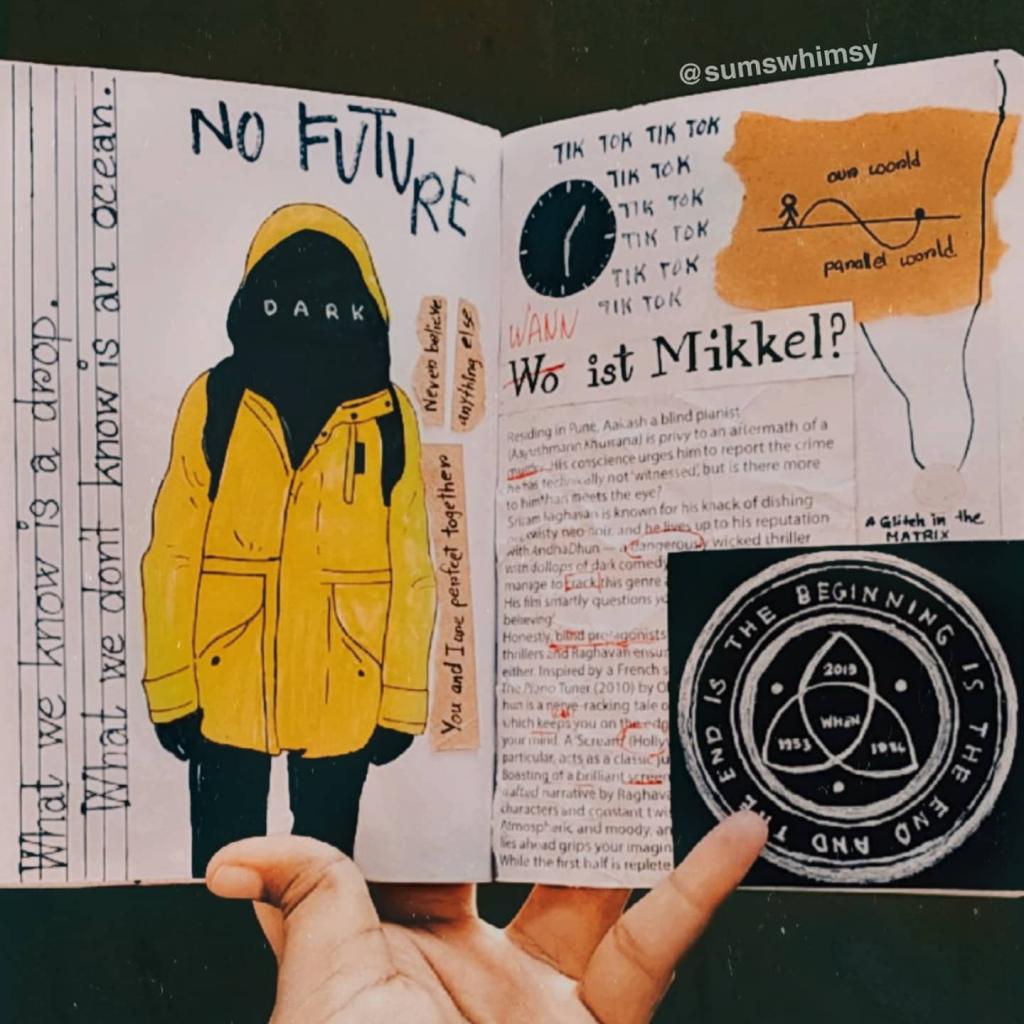 @sumswhimsy
What we know is a drop.
What we don't know is an ocean.
NO FUTURE
DARK
Never believe
anything else
You and I are perfect together
TIK TOK TIK TOK
TIK TOK
TIK TOK
TIK TOK
TIK TOK
TIK TOK
our world
parallel world
WANN
Wo ist Mikkel?
Residing in Pune, Aakash a blind pianist
(Aayushmann Khurrana) is privy to an aftermath of a
His conscience urges him to report the crime
he has technically not 'witnessed', but is there more
to him than meets the eye?
Sriram Raghavan is known for his knack of dishing
twisty neo noir, and he lives up to his reputation
with AndhaDhun — a dangerously wicked thriller
with dollops of dark comedy
manage to crack this genre
His film smartly questions
believing'
Honestly, blind protagonists
thrillers and Raghavan
either. Inspired by a French
The Piano Tuner (2010) by
is a nerve-racking tale o
which keeps you on the edg
your mind. A 'Scream' (Holly
particular, acts as a classic
Boasting of a brilliant screen
crafted narrative by Raghava
characters and constant twi
Atmospheric and moody, an
lies ahead grips your imagin
While the first half is replete
A Glitch in the
MATRIX
THE BEGINNING IS THE END AND THE END IS
2019
WHEN
1953 1986